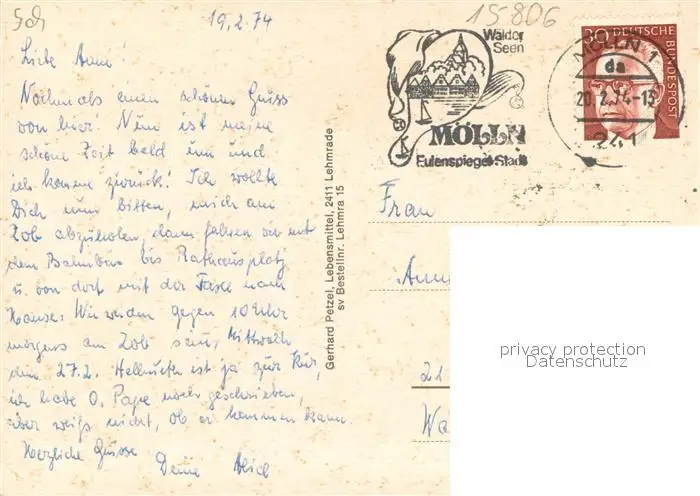 15806
19.2.74
Liebe Anni!
Nochmals einen schönen Gruss
von hier! Nun ist meine
schöne Zeit bald um und
ich komme zurück! Ich wollte
Dich nun bitten, mich am
Zob abzuholen, dann fahren wir mit
dem Bahnbus bis Rathausplatz
u. von dort mit der Taxe nach
Hause. Wir werden gegen 10 Uhr
morgens am Zob sein, Mittwoch
den 27.2. Hellmuth ist ja zur Kur,
ich habe O. Pape noch geschrieben,
aber weiß nicht, ob er kommen kann.
Herzliche Grüsse
Deine
Gerhard Petzel, Lebensmittel, 2411 Lehmrade
sv Bestellnr. Lehmra 15
Wälder
Seen
MÖLLN
Eulenspiegel-Stadt
MÖLLN 1
da
20.2.74-15
241
30
DEUTSCHE BUNDESPOST
Frau
21
privacy protection
Datenschutz